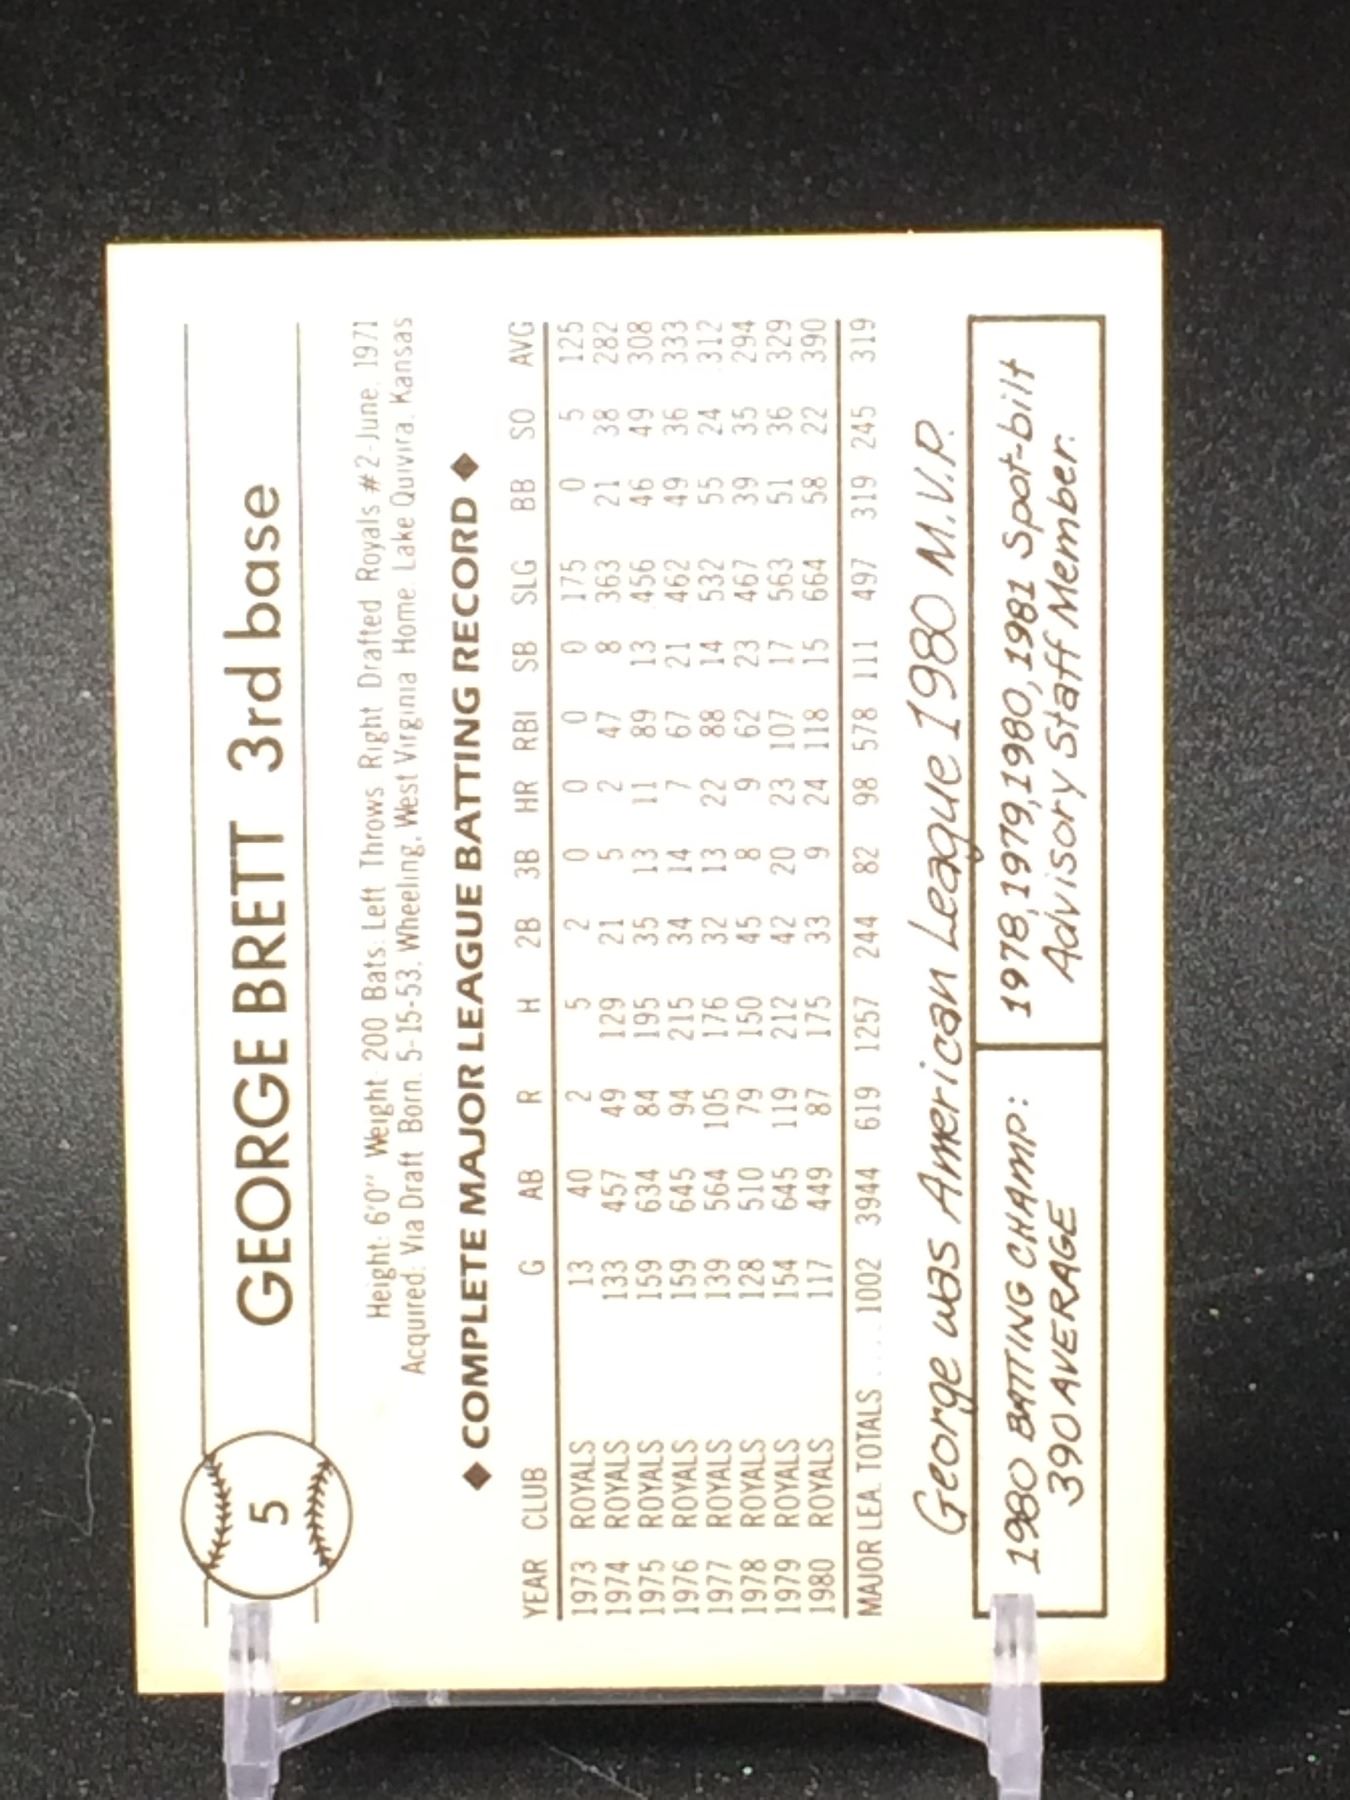 5
GEORGE BRETT 3rd base
Height: 6'0" Weight: 200 Bats: Left Throws: Right Drafted Royals #2-June, 1971
Acquired: Via Draft Born: 5-15-53, Wheeling, West Virginia Home: Lake Quivira, Kansas
◆ COMPLETE MAJOR LEAGUE BATTING RECORD ◆
YEAR CLUB G AB R H 2B 3B HR RBI SB SLG BB SO AVG
1973 ROYALS 13 40 2 5 2 0 0 0 0 175 0 5 125
1974 ROYALS 133 457 49 129 21 5 2 47 8 363 21 38 282
1975 ROYALS 159 634 84 195 35 13 11 89 13 456 46 49 308
1976 ROYALS 159 645 94 215 34 14 7 67 21 462 49 36 333
1977 ROYALS 139 564 105 176 32 13 22 88 14 532 55 24 312
1978 ROYALS 128 510 79 150 45 8 9 62 23 467 39 35 294
1979 ROYALS 154 645 119 212 42 20 23 107 17 563 51 36 329
1980 ROYALS 117 449 87 175 33 9 24 118 15 664 58 22 390
MAJOR LEA. TOTALS .... 1002 3944 619 1257 244 82 98 578 111 497 319 245 319
George was American League 1980 M.V.P.
1980 BATTING CHAMP:
390 AVERAGE
1978, 1979, 1980, 1981 Spot-bilt
Advisory Staff Member.